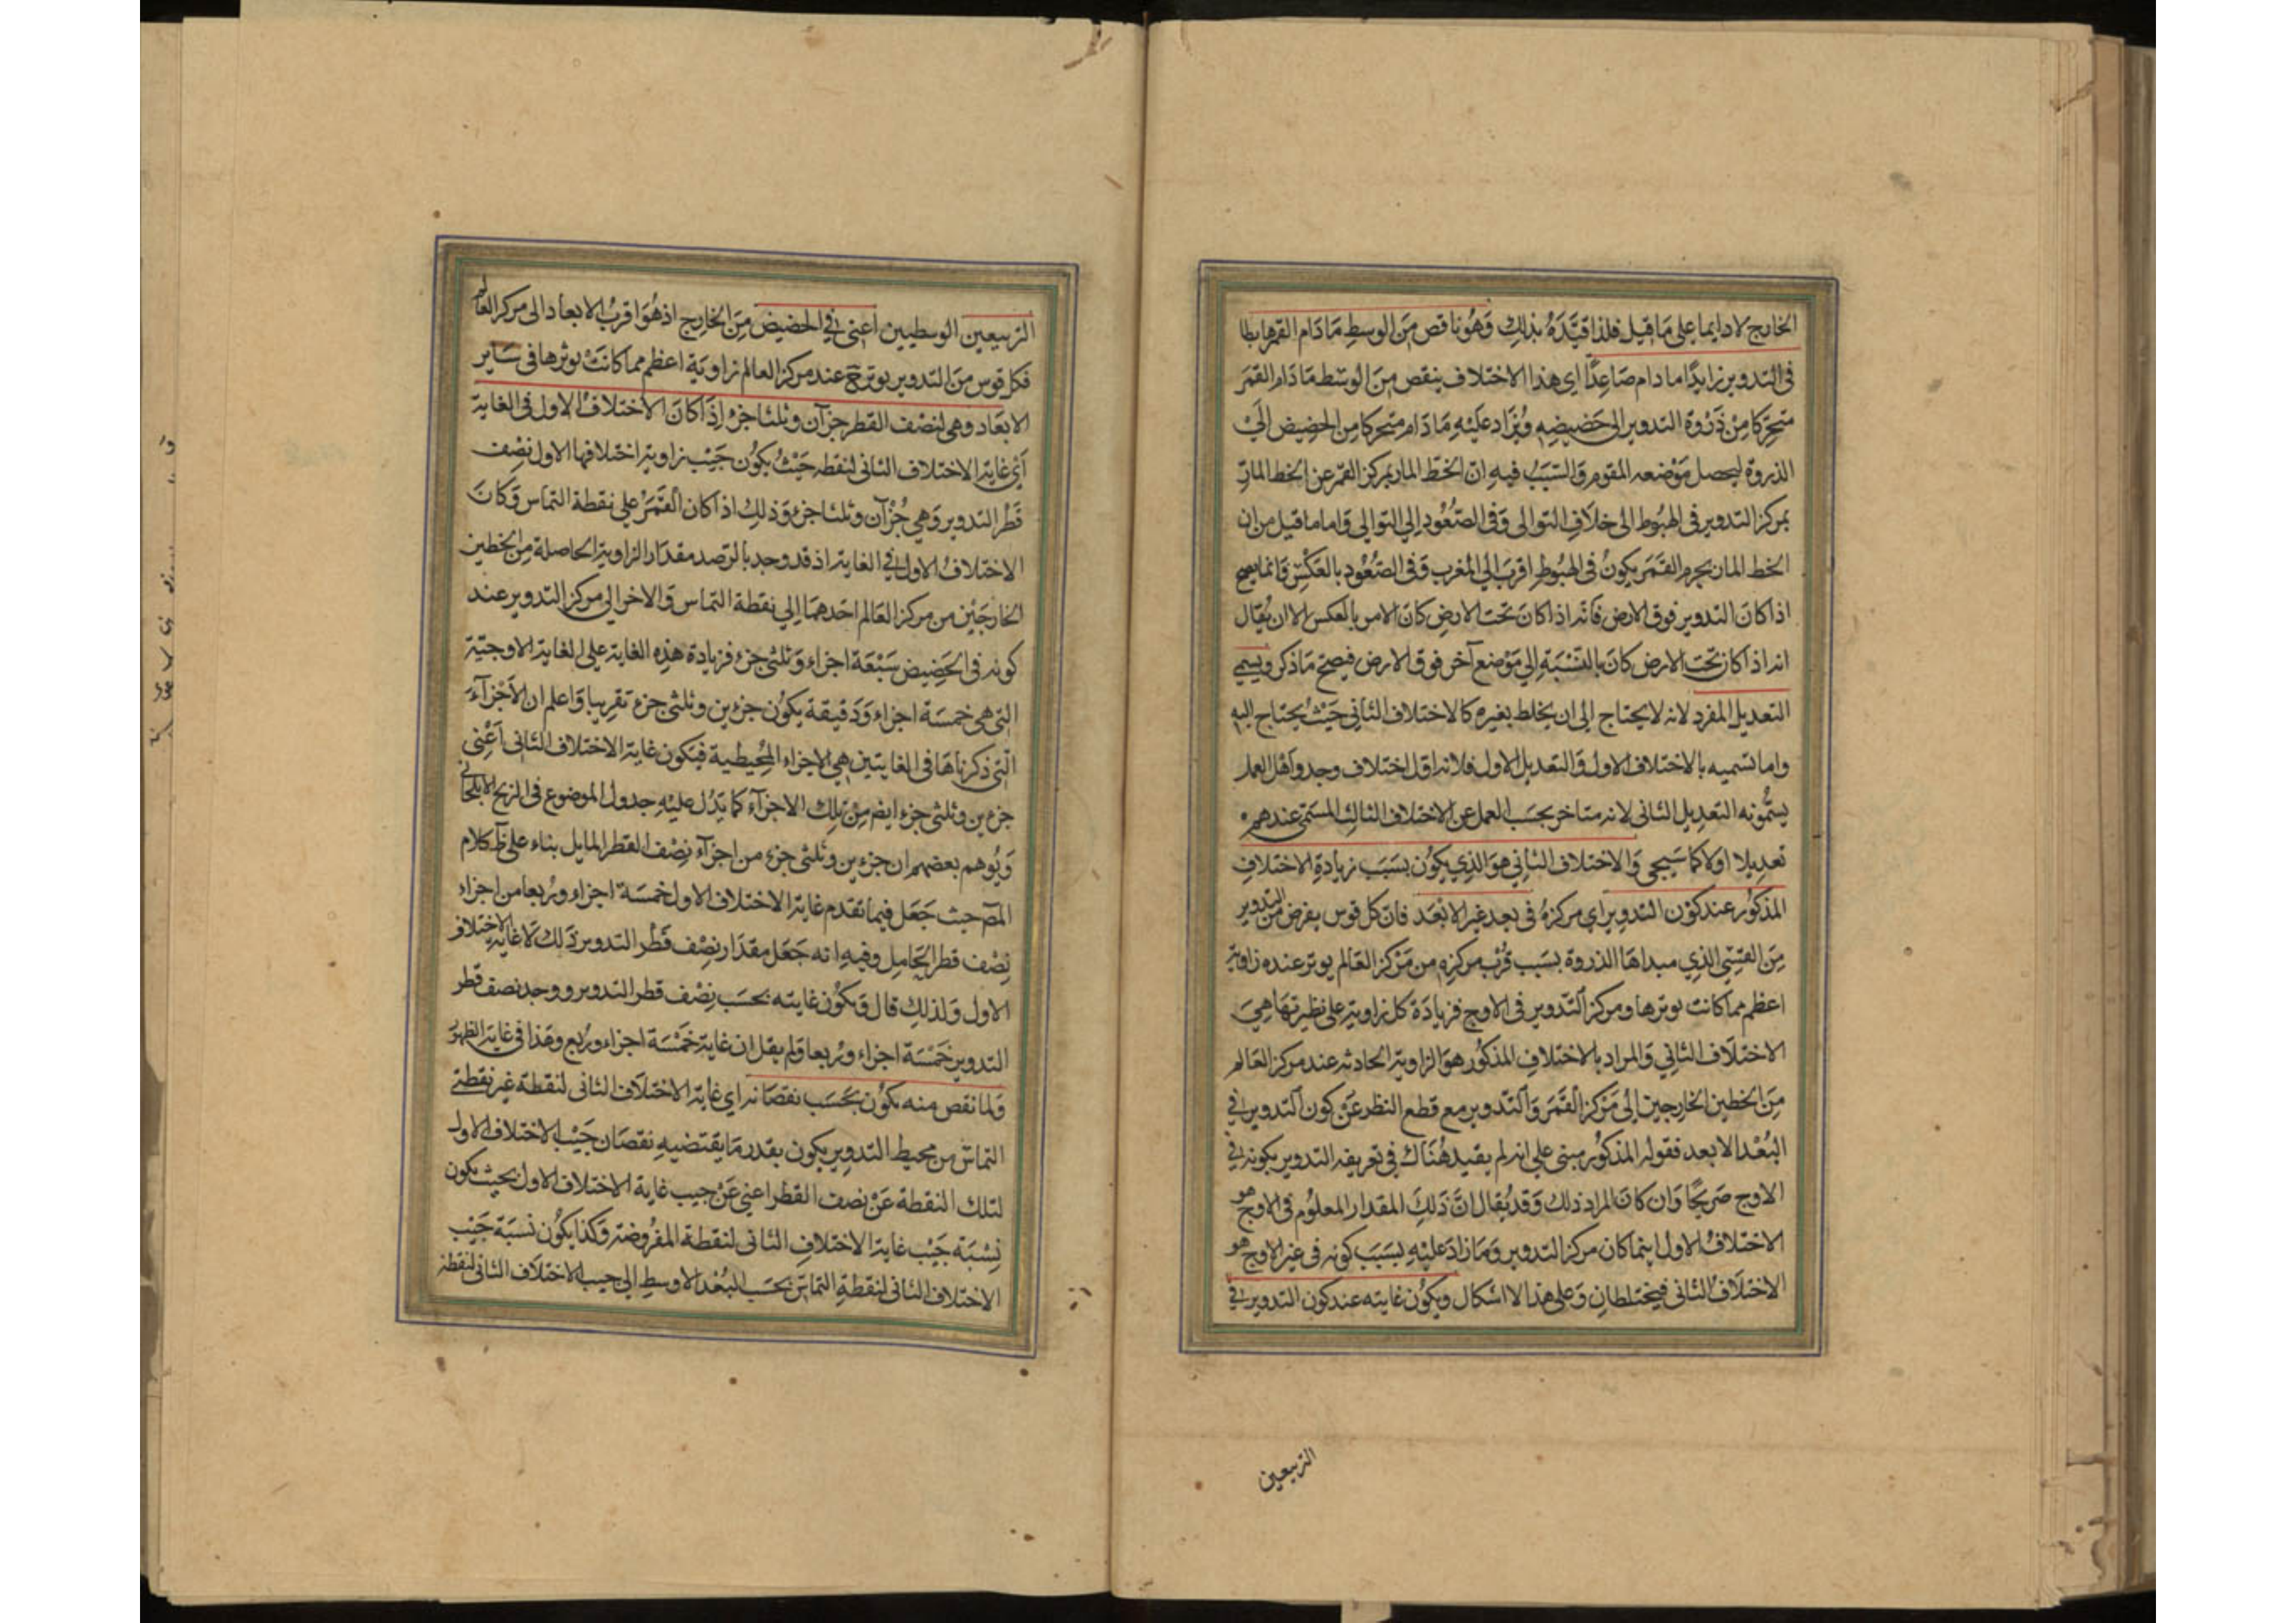 الخارج لا دايما على ما قيل فلذا قيّده بذلك وهو ناقص من الوسط ما دام القمر هابطا
فى التدوير زايدًا ما دام صاعدًا اى هذا الاختلاف ينقص من الوسط ما دام القمر
متحركا من ذروة التدوير الى حضيضه ويزاد عليه ما دام متحركا من الحضيض الى
الذروة ليحصل موضعه المقوم والسبب فيه ان الخط المار بمركز القمر عن الخط المار
بمركز التدوير فى الهبوط الى خلاف التوالى وفى الصعود الى التوالى واما ما قيل من ان
الخط المار بجرم القمر يكون فى الهبوط اقرب الى المغرب وفى الصعود بالعكس فانما يصح
اذا كان التدوير فوق الارض فانه اذا كان تحت الارض كان الامر بالعكس الا ان يقال
انه اذا كان تحت الارض كان بالنسبة الى موضع آخر فوق الارض فيصح ما ذكر ويسمى
التعديل المفرد لانه لا يحتاج الى ان يخلط بغيره كالاختلاف الثانى حيث يحتاج اليه
واما تسميه بالاختلاف الاول والتعديل الاول فلانه اول اختلاف وجد واهل العمل
يسمّونه التعديل الثانى لانه متاخر بحسب العمل عن الاختلاف الثالث المسمى عندهم
تعديلا اولا كما سيجى والاختلاف الثانى هو الذى يكون بسبب زيادة الاختلاف
المذكور عند كون التدوير اى مركزه فى بعد غير الابعد فان كل قوس يفرض من التدوير
من القسى الذى مبداها الذروة بسبب قرب مركزه من مركز العالم يوتر عنده زاوية
اعظم مما كانت يوترها ومركز التدوير فى الاوج فزيادة كل زاوية على نظيرتها هى
الاختلاف الثانى والمراد بالاختلاف المذكور هو الزاوية الحادثه عند مركز العالم
من الخطين الخارجين الى مركز القمر والتدوير مع قطع النظر عن كون التدوير فى
البعد الابعد فقوله المذكور مبنى على انه لم يقيد هناك فى تعريفه التدوير بكونه فى
الاوج صريحًا وان كان المراد ذلك وقد يقال انّ ذلك المقدار المعلوم فى الاوج هو
الاختلاف الاول اينما كان مركز التدوير وما زاد عليه بسبب كونه فى غير الاوج هو
الاختلاف الثانى فيختلطان وعلى هذا لا اشكال ويكون غايته عند كون التدوير فى
التربيعين
التربيعين الوسطيين اعنى فى الحضيض من الخارج اذ هو اقرب الابعاد الى مركز العالم
فكل قوس من التدوير يوتر ح عند مركز العالم زاوية اعظم مما كانت يوترها فى ساير
الابعاد وهى لنصف القطر جزآن وثلثا جزء اذا كان الاختلاف الاول فى الغاية
اى غاية الاختلاف الثانى لنقطه حيث يكون جيب زاوية اختلافها الاول نصف
قطر التدوير وهى جزآن وثلثا جزء وذلك اذا كان القمر على نقطة التماس وكان
الاختلاف الاول فى الغاية اذ قد وجد بالرصد مقدار الزاوية الحاصلة من الخطين
الخارجين من مركز العالم احدهما الى نقطة التماس والاخر الى مركز التدوير عند
كونه فى الحضيض سبعة اجزاء وثلثى جزء فزيادة هذه الغاية على الغاية الاوجية
التى هى خمسة اجزاء ودقيقة يكون جزءين وثلثى جزء تقريبا واعلم ان الاجزآء
التى ذكرناها فى الغايتين هى الاجزاء المحيطية فيكون غاية الاختلاف الثانى اعنى
جزءين وثلثى جزء ايضا من تلك الاجزآء كما يدل عليه جدول الموضوع فى الزيج الايلخانى
ويوهم بعضهم ان جزءين وثلثى جزء من اجزآء نصف القطر المايل بناء على ظ كلام
المص حيث جعل فيما تقدم غاية الاختلاف الاول خمسة اجزاء وربعا من اجزاء
نصف قطر الحامل وفيه انه جعل مقدار نصف قطر التدوير ذلك لا غاية الاختلاف
الاول ولذلك قال ويكون غايته بحسب نصف قطر التدوير ووجد نصف قطر
التدوير خمسة اجزاء وربعا ولم يقل ان غاية خمسة اجزاء وربع وهذا فى غاية الظهور
ولما نقص منه يكون بحسب نقصانه اى غاية الاختلاف الثانى لنقطة غير نقطتى
التماس من محيط التدوير يكون بقدر ما يقتضيه نقصان جيب الاختلاف الاول
لتلك النقطة عن نصف القطر اعنى عن جيب غاية الاختلاف الاول بحيث يكون
نسبة جيب غاية الاختلاف الثانى لنقطة المفروضة وكذا يكون نسبة جيب
الاختلاف الثانى لنقطة التماس بحسب البعد الاوسط الى جيب الاختلاف الثانى لنقطة